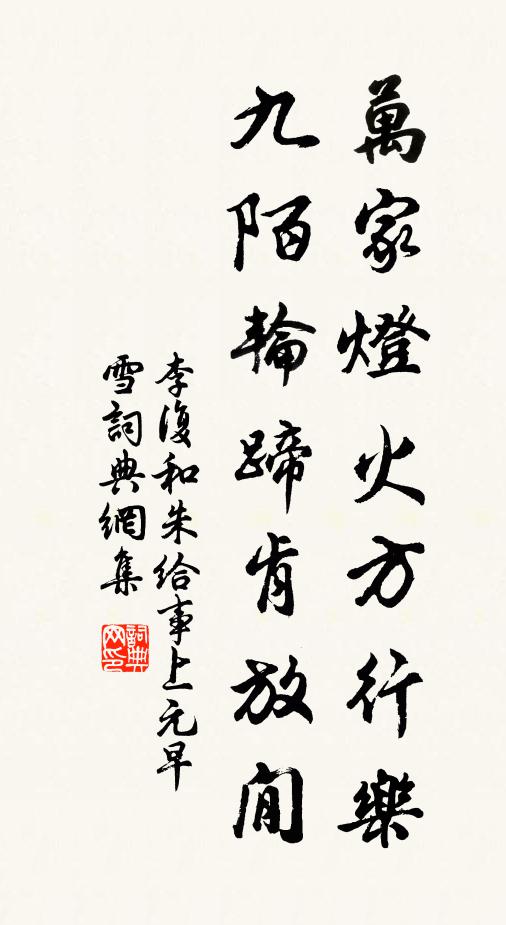 萬家燈火方行樂
九陌輪蹄肯放閒
李復和朱給事上元早
雪詞典網集
詞典網印